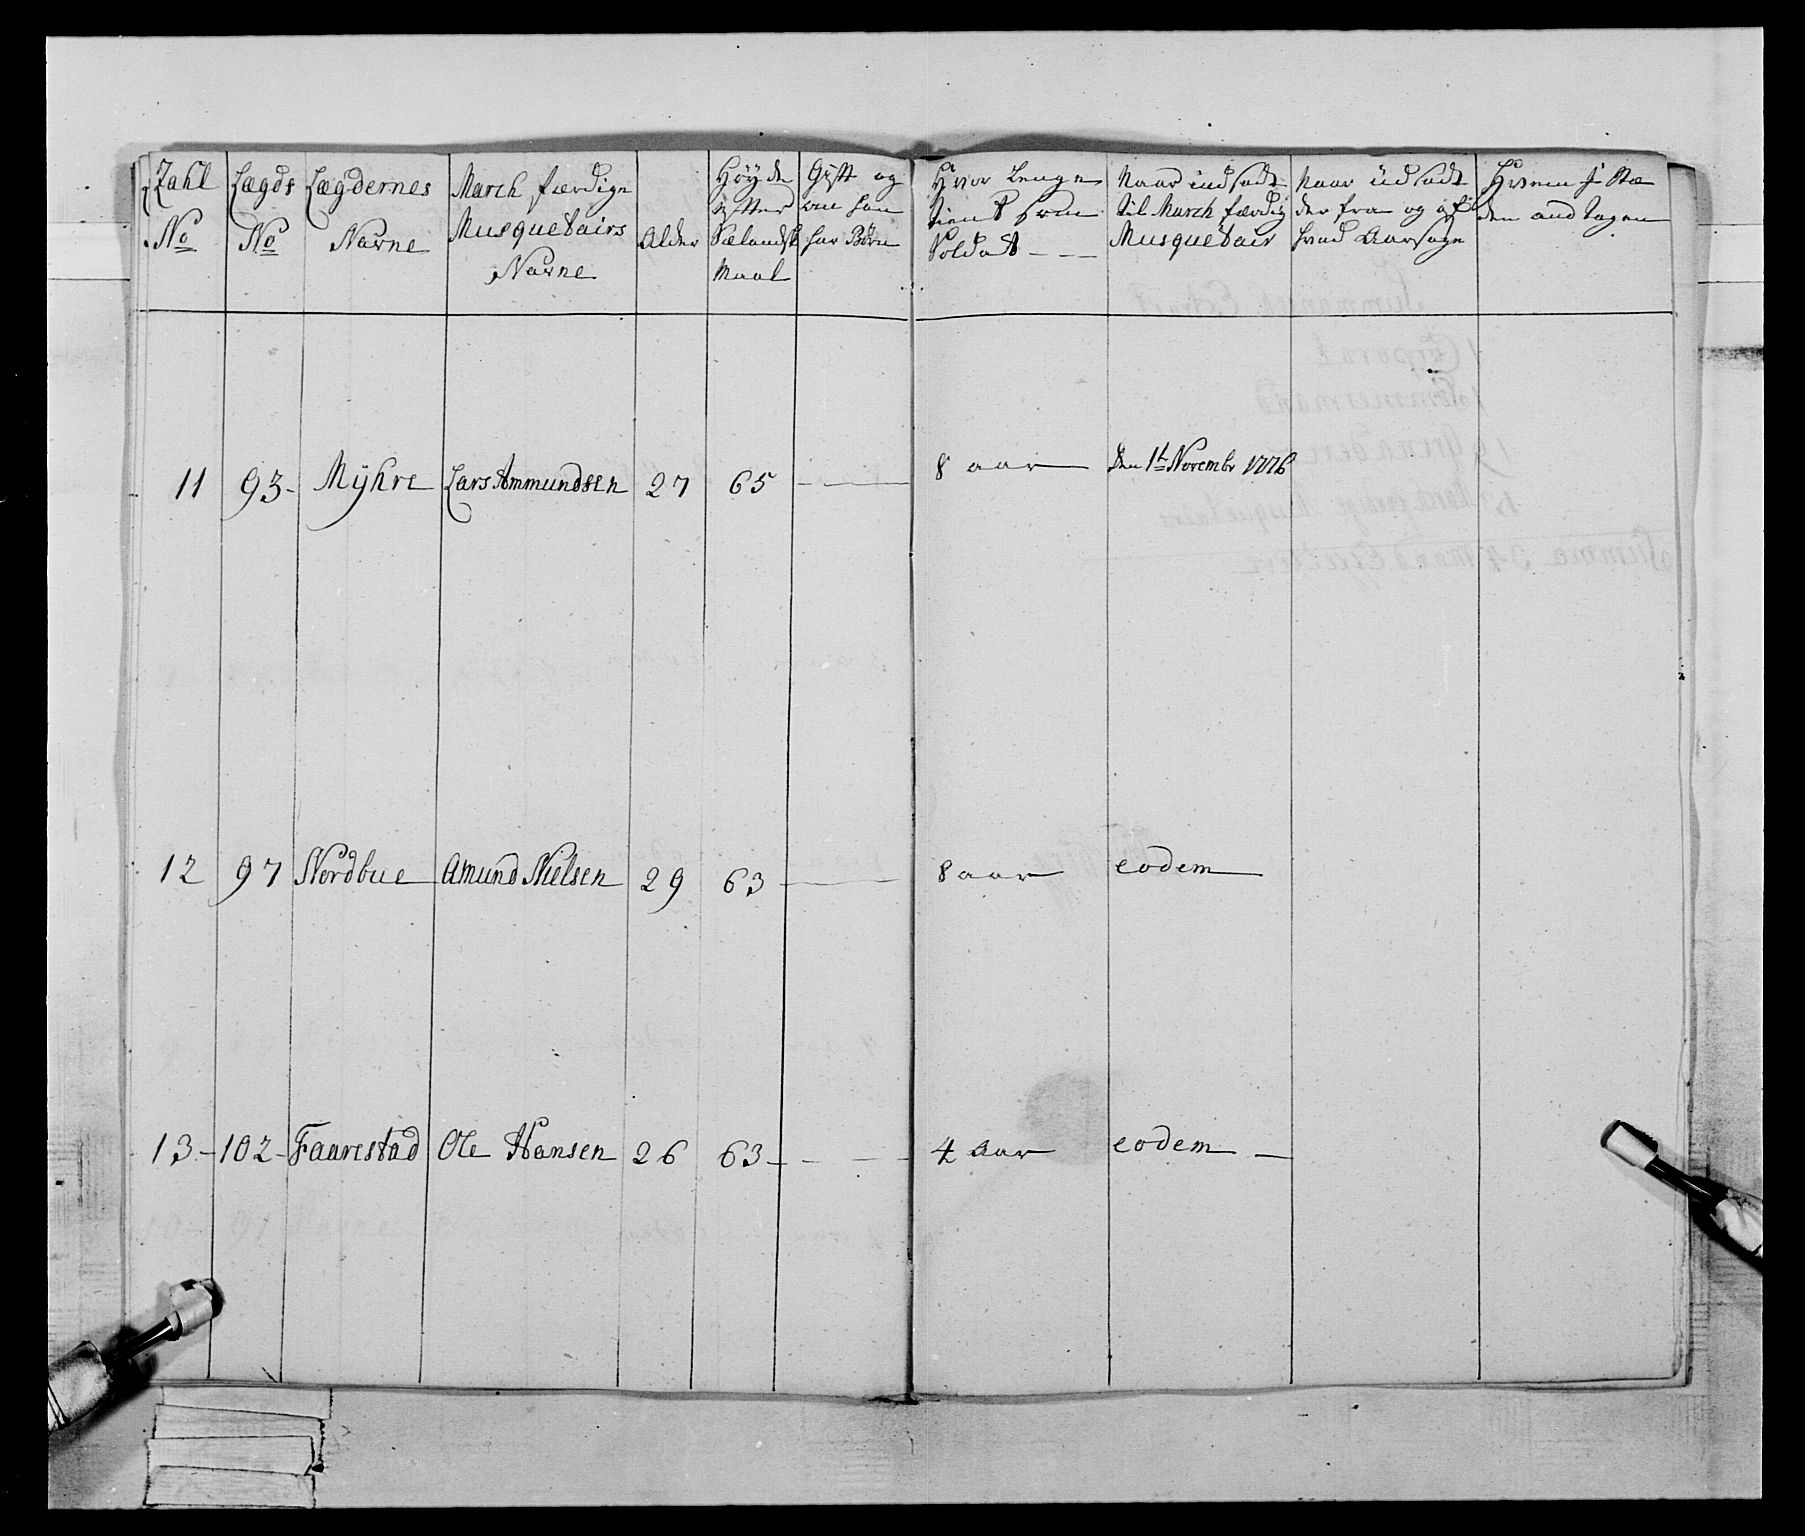 Zahl No
Lægds No
Lægdernes Navne
March færdige Musquetairs Navne
Alder
Høyde efter Siælandsk Maal
Gift og om han har Børn
Hvor Lenge tient som Soldat
Naar indsadt til March færdig Musquetair
Naar udsadt der fra og af hvad Aarsage
Hvem i stæden andtagen
11 93 Mÿhre Lars Ammundsen 27 65 8 aar Den 1t Novembr 1776
12 97 Nordbue Amund Nielsen 29 63 8 aar eodem
13 102 Faarestad Ole Hansen 26 63 4 Aar eodem